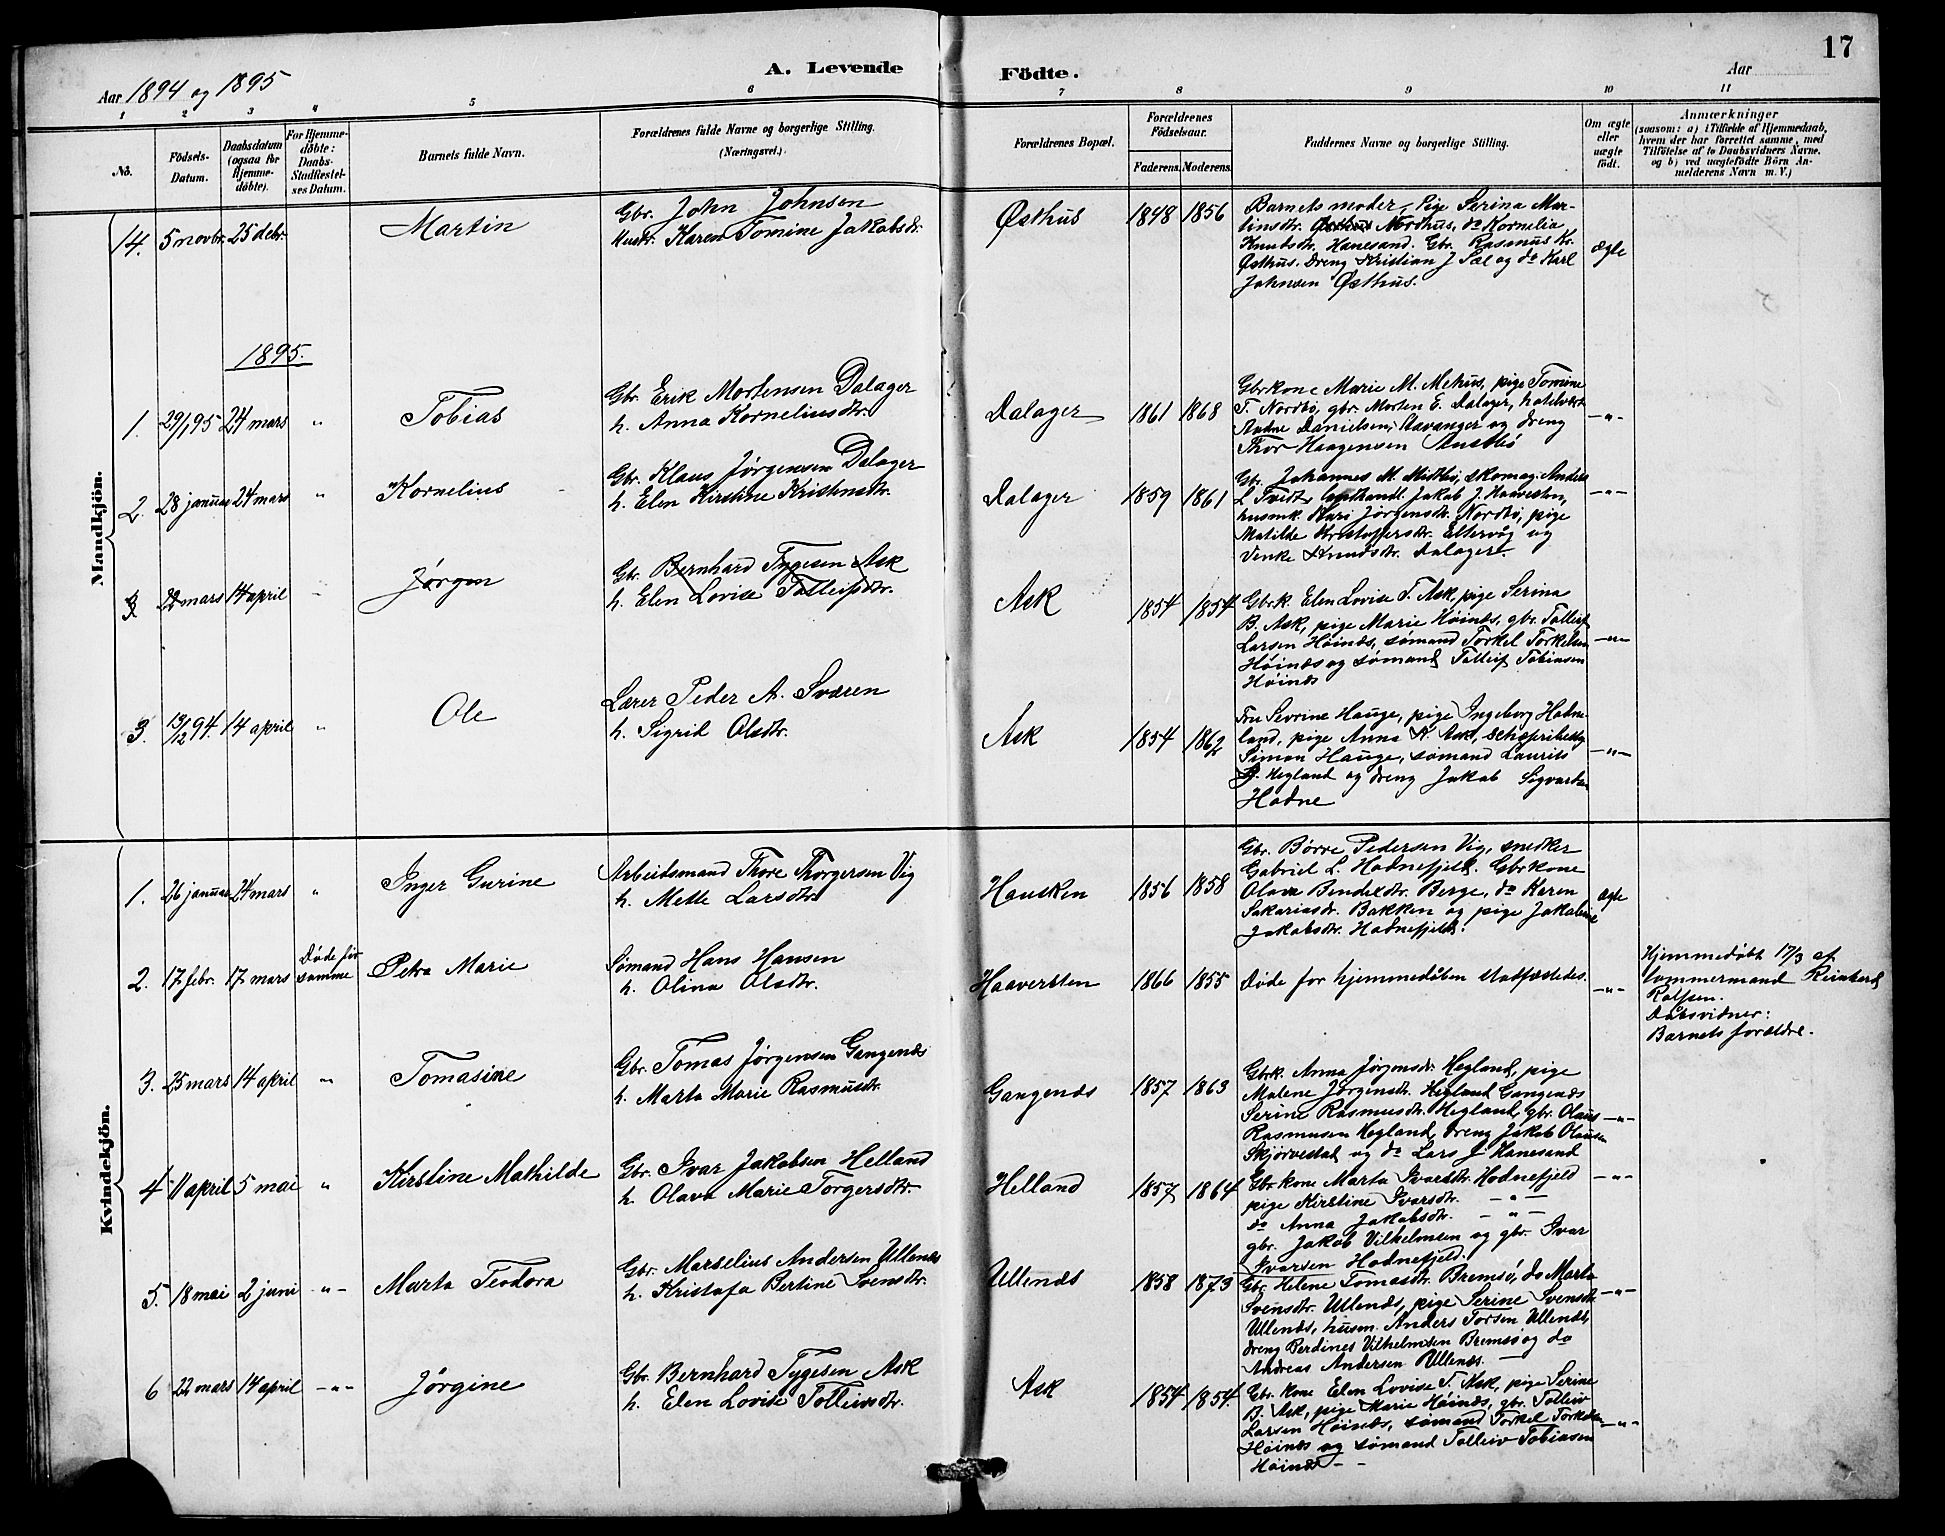 17
Aar 1894 og 1895
A. Levende Födte.
Aar
1 2 3 4 5 6 7 8 9 10 11
No.
Födsels-
Datum.
Daabsdatum
(ogsaa for
Hjemme-
döbte).
For Hjemme-
döbte:
Daabs-
Stadfæstel-
ses Datum.
Barnets fulde Navn.
Forældrenes fulde Navne og borgerlige Stilling.
(Næringsvei.)
Forældrenes Bopæl.
Forældrenes
Födselsaar.
Faderens. Moderens.
Faddernes Navne og borgerlige Stilling.
Om ægte
eller
uægte
födt.
Anmærkninger
(saasom: a) i Tilfælde af Hjemmedaab,
hvem der har forrettet samme, med
Tilföielse af to Daabsvidners Navne.
og b) ved uægtefödte Börn An-
melderens Navn m. V.)
Mandkjön.
14. 5 novbr. 25 debr. Martin
Gbr. John Johnsen
Hustr. Karen Tomine Jakobsdr.
Østhus 1848 1856
Barnets moder, Pige Serina Mar-
tinsdtr. Østhus Nordhus, do Kornelia
Knutsdtr. Hanesand. Gbr. Rasmus Kr.
Østhus. Dreng Kristian J. Sæl og do Karl
Johnsen Østhus.
ægte
1895.
1. 29/1 95 24 mars " Tobias
Gbr. Erik Mortensen Dalager
h. Anna Korneliusdtr.
Dalager 1861 1868
Gbrkone Marie M. Mehus, pige Tomine
T. Nordbø, gbr. Morten E. Dalager, hotelvært
Andne Danielsen, Stavanger og dreng
Thor Haagensen Austbø
-"-
2. 28 januar 24 mars " Kornelius
Gbr. Klaus Jørgensen Dalager
h. Elen Kirstine Kristensdtr.
Dalager 1859 1861
Gbr. Johannes M. Midbøe, skomag. Anders
L. Tvedt, Jakob J. Haavesten,
husmk. Kari Jørgensdtr. Nordbø, pige
Matilde Kristoffersdtr. Eltervåg og
Venke Knudsdtr. Dalager.
-"-
3 22 mars 14 april " Jørgen
Gbr. Bernhard Tygesen Ask
h. Elen Lovise Tolleifsdtr.
Ask 1854 1854
Gbrk. Elen Lovise T. Ask, pige Serina
B. Ask, pige Marie Høines, gbr. Tolleif
Larsen Høines, sømand Torkel Torkelsen
Høines og sømand Tolleif Tobiasen
Høines
-"-
3. 13/12 94. 14 april " Ole
Lærer Peder A. Sværen
h. Sigrid Olsdtr.
Ask 1854 1862
Fru Sevrine Hauge, pige Ingeborg Hodne-
land, pige Anna K. Ask,
Simon Hauge, sømand Laurits
Hegland og dreng Jakob Sigvartsen
Hodne
-"-
Kvindekjön.
1. 26 januar 24 mars " Inger Gurine
Arbeidsmand Thore Thorgersen Vig
h. Mette Larsdtr.
Hausken 1856 1858
Gbr. Børre Pedersen Vig, snedker
Gabriel L. Hodnefjeld. Gbrkone
Olava Bendixdtr. Berge, do Karen
Sakariasdr. Bakken og pige Jakobine
Jakobsdtr. Hodnefjeld.
ægte
2. 17 febr. 17 mars Døde før
samme
Petra Marie
Sømand Hans Hansen
h. Olina Olsdtr.
Haaversten 1866 1855
Døde før hjemmedåben stadfæstedes.
-"-
Hjemmedøbt 17/3 af
tømmermand Reinhard
Rolfsen.
Dåbsvidner:
Barnets forældre.
3. 25 mars 14 april " Tomasine
Gbr. Tomas Jørgensen Gangenes
h. Marta Marie Rasmusdtr.
Gangenes 1857 1863
Gbrk. Anna Jørgensdr. Hegland, pige
Malene Jørgensdtr. Hegland Gangenes
Serine Rasmusdtr. Hegland, gbr. Olaus
Rasmusen Hegland, dreng Jakob Olausen
Skjørvestad og do Lars J. Hanesand
-"-
4 11 april 5 mai " Kirstine Mathilde
Gbr. Ivar Jakobsen Helland
h. Olava Marie Torgersdtr.
Helland 1857 1864
Gbrkone Marta Ivarsdtr. Hodnefjeld
pige Kirstine Ivarsdtr. -"-
do Anna Jakobsdtr. -"-
gbr. Jakob Vilhelmsen og gbr. Ivar
Ivarsen Hodnefjeld.
-"-
5. 18 mai 2 juni -"- Marta Teodora
Gbr. Marselius Andersen Ullenes
h. Kristofa Bertine Svensdtr.
Ullenes 1858 1873
Gbr. Helene Tomasdtr. Bremsø, do Marta
Svensdtr. Ullenes, pige Serine Svensdtr.
Ullenes, husm. Anders Torsen Ullenes,
dreng Berdines Vilhelmsen Bremsø og do
Andreas Andersen Ullenes.
-"-
6 22 mars 14 april -"- Jørgine
Gbr. Bernhard Tygesen Ask
h. Elen Lovise Tolleivsdtr.
Ask 1854 1854
Gbr. kone Elen Lovise T. Ask, pige Serine
B. Ask, pige Marie Høines, gbr. Tolleiv
Larsen Høines, sømand Torkel Torkelsen
Høines og sømand Tolleiv Tobiasen
Høines
-"-